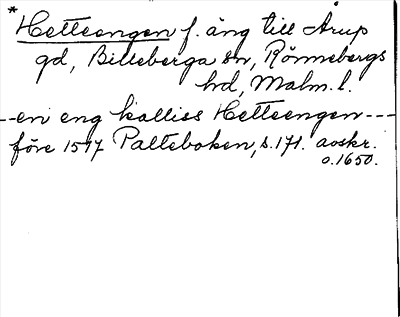 * Hetteengen f. äng till Årup
gd, Billeberga sn, Rönnebergs
hd, Malm. l.
--en eng kalliss Hetteengen---
före 1517 Palteboken, s. 171. avskr.
o. 1650.